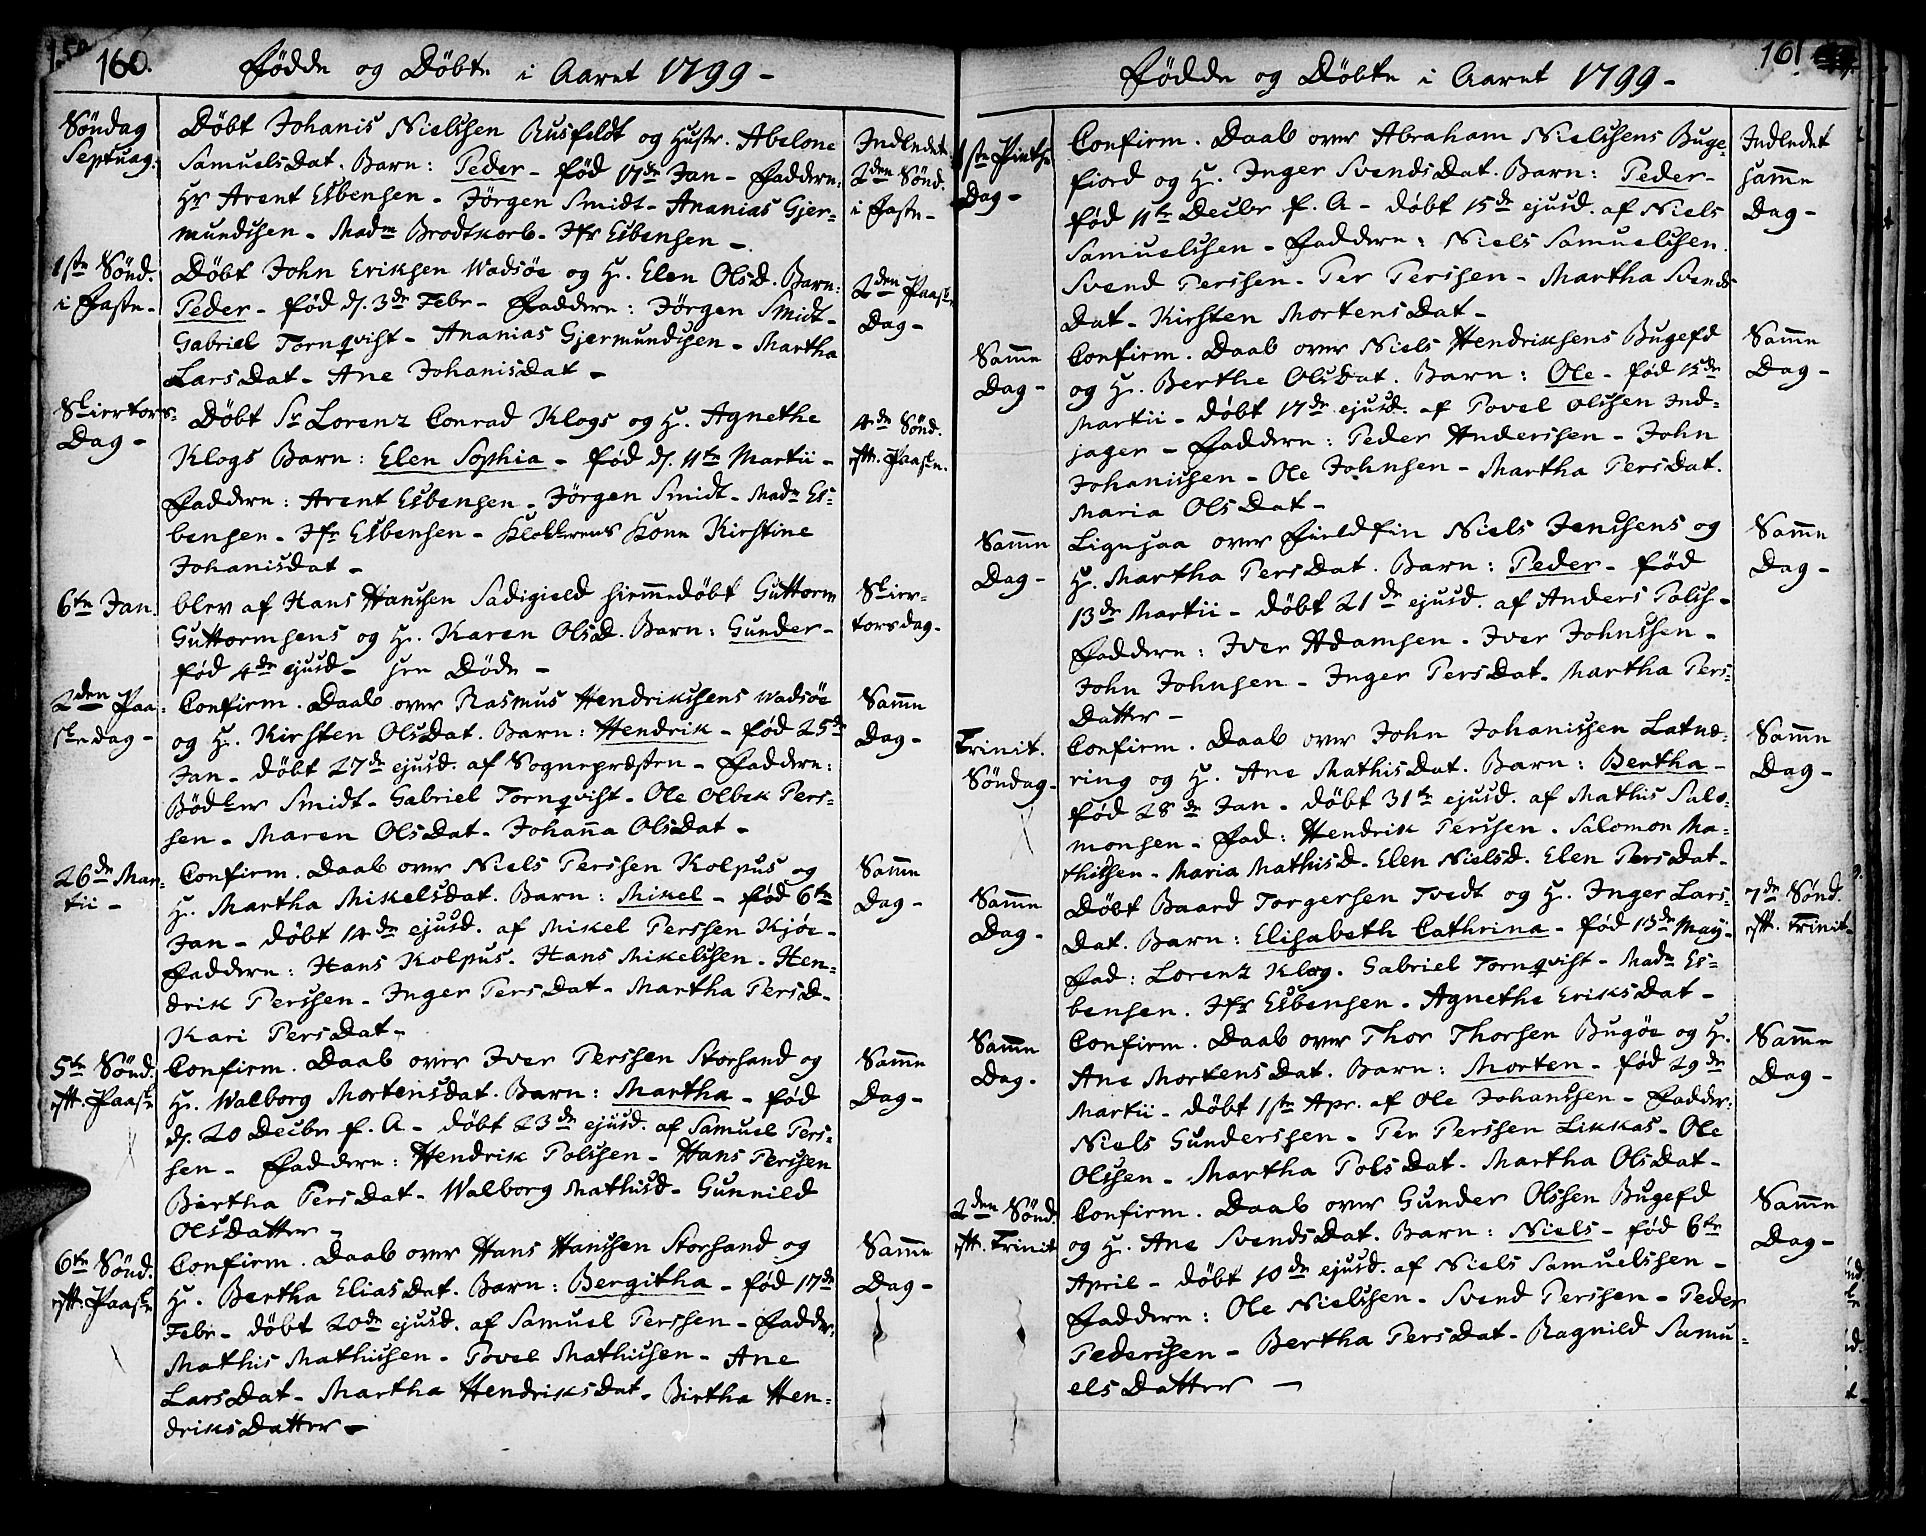 160.
Fødde og Døbte i Aaret 1799 -
Søndag
Septuag:
Døbt Johanis Nielssen Rusfeldt og Hustr. Abelone
SamuelsDat. Barn: Peder - fød 17de Jan - Faddere:
Hr Arent Esbensen - Jörgen Smidt - Ananias Gjer-
mundssen - Madm Brodtkorb - Jfr Esbensen -
Indledet
2den Sønd.
i Faste -
1ste Sønd.
i Faste -
Døbt John Eriksen Wadsöe og H. Elen OlsD. Barn:
Peder - fød d. 3de Febr - Faddere: Jörgen Smidt -
Gabriel Tornqvist - Ananias Gjermundssen - Martha
LarsDat - Ane JohanisDat -
2den Paaske
Dag -
Skiertors-
Dag -
Døbt Sr Lorenz Conrad Klogs og H. Agnethe
Klogs Barn: Elen Sophia - fød d. 11te Martii -
Faddere: Arent Esbensen - Jörgen Smidt - Madm Es-
bensen - Jfr Esbensen - Klokkerens Kone Kirstine
Johanisdat -
4de Sønd.
eft. Paaske.
6te Jan.
blev af Hans Hanssen Sadigield hiemmedøbt Guttorm
Guttormsens og H. Karen OlsD. Barn: Gunder -
fød 4de ejusd - hen Døde -
Skier-
torsdag -
2den Paa-
skedag -
Confirm. Daab over Rasmus Hendrikssens Wadsöe
og H. Kirsten OlsDat. Barn: Hendrik - fød 25de
Jan - døbt 27de ejusd. af Sognepræsten - Faddere:
Bødker Smidt - Gabriel Tornqvist - Ole Olbek Pers-
sen - Maren OlsDat - Johanna OlsDat -
Samme
Dag -
26de Mar-
tii -
Confirm. Daab over Niels Perssen Kolpus og
H. Martha Mikelsdat. Barn: Mikel - fød 6te
Jan - døbt 14de ejusd. af Mikel Perssen Kjöe -
Faddere: Hans Kolpus - Hans Mikelssen - Hen-
drik Perssen - Inger PersDat - Martha PersD -
Kari PersDat -
Samme
Dag -
5te Sønd.
eft. Paaske
Confirm. Daab over Iver Perssen Storsand og
H. Walborg Mortensdat. Barn: Martha - fød
d. 20 Decbr f. A - døbt 23de ejusd. af Samuel Pers-
sen - Faddere: Hendrik Polssen - Hans Perssen
Birtha PersDat - Walborg Mathisd - Gunnild
OlsDatter -
Samme
Dag -
6te Sønd.
eft. Paaske
Confirm. Daab over Hans Hanssen Storsand og
H. Bertha EliasDat. Barn: Bergitha - fød 17de
Febr - døbt 20de ejusd. af Samuel Perssen - Fadder:
Mathis Mathissen - Povel Mathissen - Ane
LarsDat - Martha HendriksDat - Birtha Hen-
driksDatter -
Samme
Dag -
161
Fødde og Døbte i Aaret 1799 -
1ste Pintse
Dag -
Confirm. Daab over Abraham Nielssens Buge-
fiord og H. Inger SvendsDat. Barn: Peder -
fød 11te Decbr f. A - døbt 15de ejusd. af Niels
Samuelssen - Faddere: Niels Samuelssen.
Svend Perssen - Per Perssen - Martha Svends
Dat - Kirsten MortensDat -
Indledet
samme
Dag -
Samme
Dag -
Confirm. Daab over Niels Hendriksens Bugefd
og H. Berthe OlsDat. Barn: Ole - fød 15de
Martii - døbt 17de ejusd. af Povel Olssen Ind-
jager - Faddere: Peder Anderssen - John
Johanissen - Ole Johnsen - Martha PersDat.
Maria OlsDat -
Samme
Dag -
Samme
Dag -
Ligesaa over Fieldfin Niels Jenssens og
H. Martha PersDat. Barn: Peder - fød
13de Martii - døbt 21de ejusd. af Anders Polss -
Faddere: Iver Adamsen - Iver Johnssen -
John Johnsen - Inger PersDat - Martha Pers-
Datter -
Samme
Dag -
Trinit.
Søndag -
Confirm. Daab over John Johanissen Latnæ-
ring og H. Ane MathisDat. Barn: Bertha -
fød 28de Jan - døbt 31te ejusd. af Mathis Salo-
monsen - Fad: Hendrik Perssen - Salomon Ma-
thissen - Maria MathisD - Elen Nielsd. Elen PersDat -
Samme
Dag -
Samme
Dag -
Døbt Baard Torgersen Tvedt og H. Inger Lars-
Dat. Barn: Elisabeth Cathrina - fød 13de May -
Fad: Lorenz Klog. Gabriel Tornqvist - Madm Es-
bensen. Jfr Esbensen - Agnethe EriksDat -
7de Sønd.
eft. Trinit -
Samme
Dag -
Confirm. Daab over Thor Thorsen Bugöe og H.
Ane MortensDat. Barn: Morten - fød 29de
Martii - døbt 1ste Apr. af Ole Johanssen - Fadder:
Niels Gunderssen - Per Perssen Likkas - Ole
Olssen - Martha PolsDat - Martha OlsDat -
Samme
Dag -
2den Sønd.
eft. Trinit
Confirm. Daab over Gunder Olssen Bugefd
og H. Ane SvendsDat. Barn: Niels - fød 6te
April - døbt 10de ejusd. af Niels Samuelssen -
Faddere: Ole Nielssen - Svend Perssen - Peder
Pederssen - Bertha PersDat - Ragnild Samu-
elsDatter -
Samme
Dag -